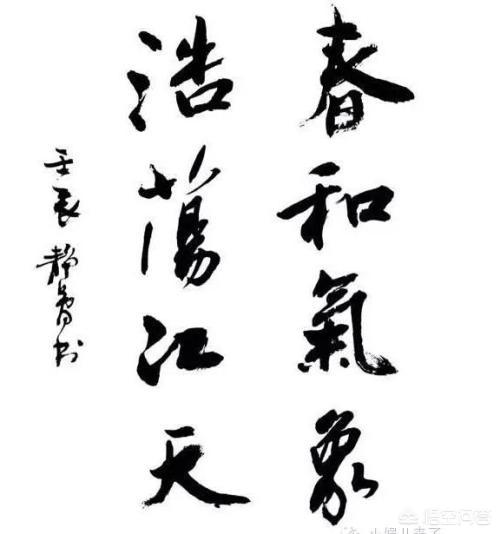 春和氣象
浩蕩江天
壬辰 静
悟空问答